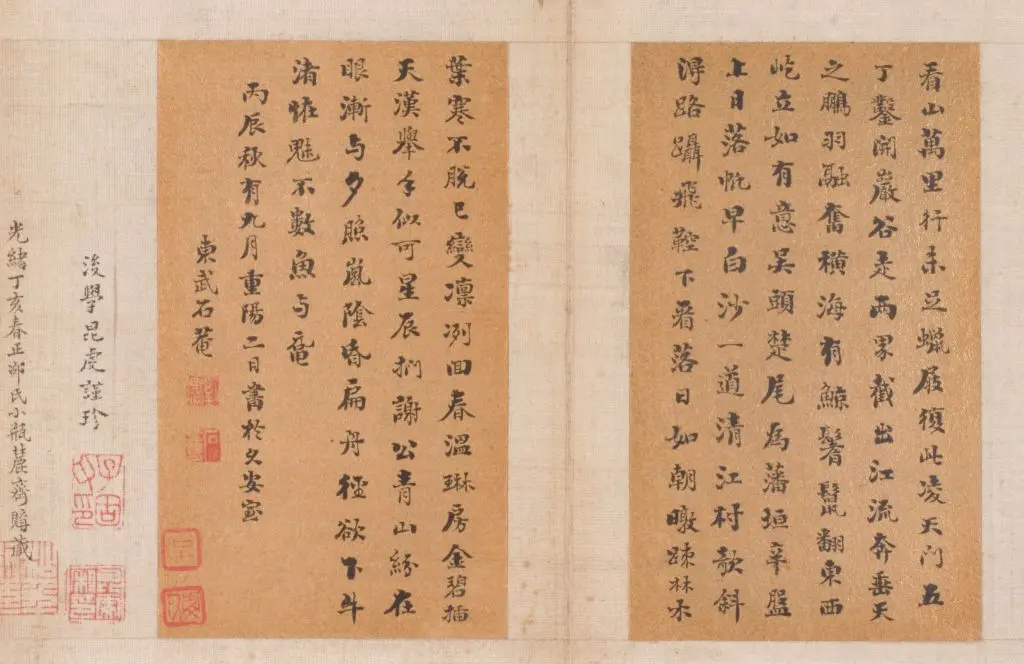 看山萬里行未足蠟屐復此凌天门五
丁鑿開巖谷走兩界截出江流奔垂天
之鵬羽融奮積海有鯨鬐鬣翻東西
屹立如有意吴頭楚尾為藩垣辛盤
上日落帆早白沙一道清江村欹斜
浔路躡飛鞚下看落日如朝暾疎林木
葉寒不脱已變凛冽回春温琳房金碧插
天漢舉手似可星辰捫謝公青山紛在
眼漸与夕照嵐陰昏扁舟徑欲下牛
渚怪魅不數魚与黿
丙辰秋有九月重陽二日書於久安室
東武石菴
後學昆虔謹珍
光緒丁亥春正邵氏小瓶麓齋購藏